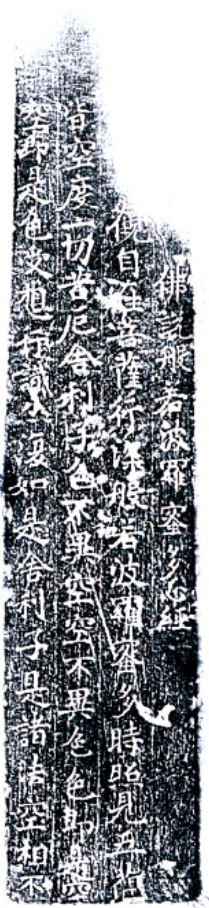 佛説般若波羅蜜多心經
觀自在菩薩行深般若波羅蜜多時昭見五蘊
皆空度一切苦厄舍利子色不異空空不異色色即是空
空即是色受想行識亦復如是舍利子是諸法空相不